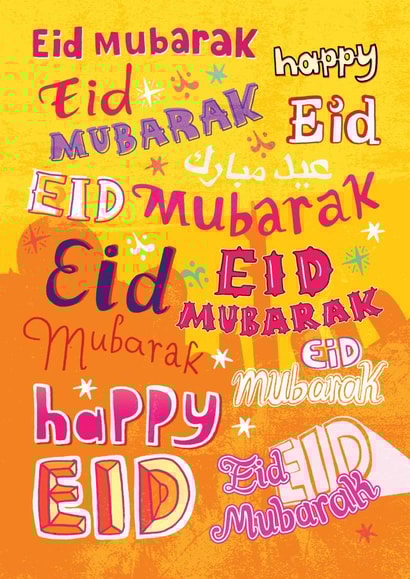 Eid Mubarak
happy
Eid
Eid
MUBARAK
عيد مبارك
EID
Mubarak
Eid
Mubarak
EID
MUBARAK
EiD
Mubarak
happy
EID
EID
Eid
Mubarak